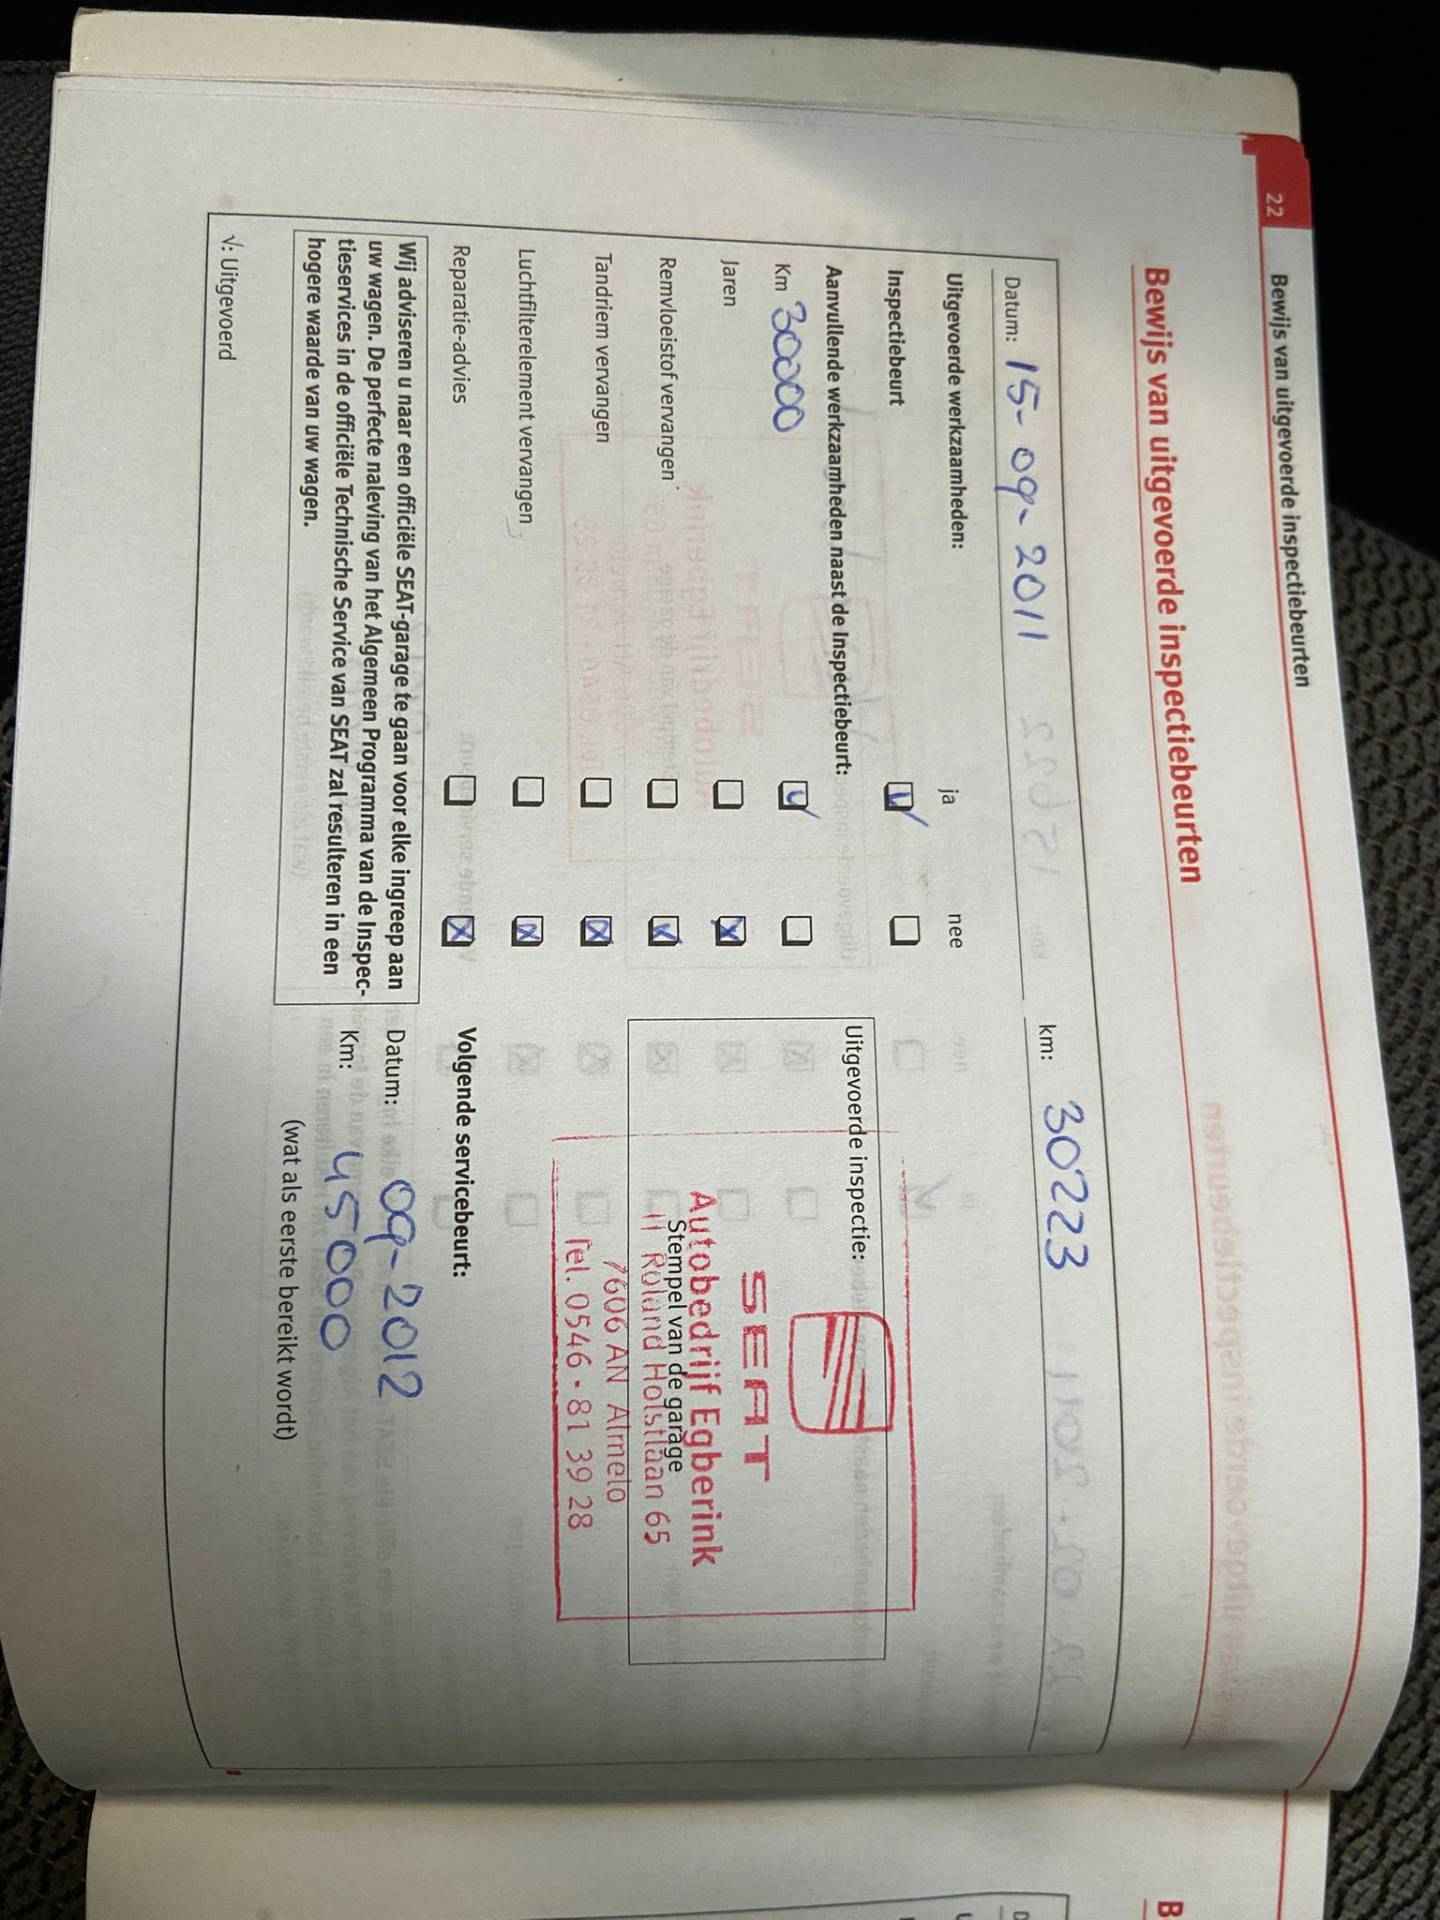 22 Bewijs van uitgevoerde inspectiebeurten
Bewijs van uitgevoerde inspectiebeurten
Datum: 15-09-2011 km: 30223
Uitgevoerde werkzaamheden: ja nee
Inspectiebeurt
Aanvullende werkzaamheden naast de Inspectiebeurt:
Km 30000
Jaren
Remvloeistof vervangen
Tandriem vervangen
Luchtfilterelement vervangen
Reparatie-advies
Wij adviseren u naar een officiële SEAT-garage te gaan voor elke ingreep aan
uw wagen. De perfecte naleving van het Algemeen Programma van de Inspec-
tieservices in de officiële Technische Service van SEAT zal resulteren in een
hogere waarde van uw wagen.
√: Uitgevoerd
Uitgevoerde inspectie:
SEAT
Autobedrijf Egberink
Stempel van de garage
H Roland Holstlaan 65
7606 AN Almelo
Tel. 0546 - 81 39 28
Volgende servicebeurt:
Datum: 09-2012
Km: 45000
(wat als eerste bereikt wordt)
B
D